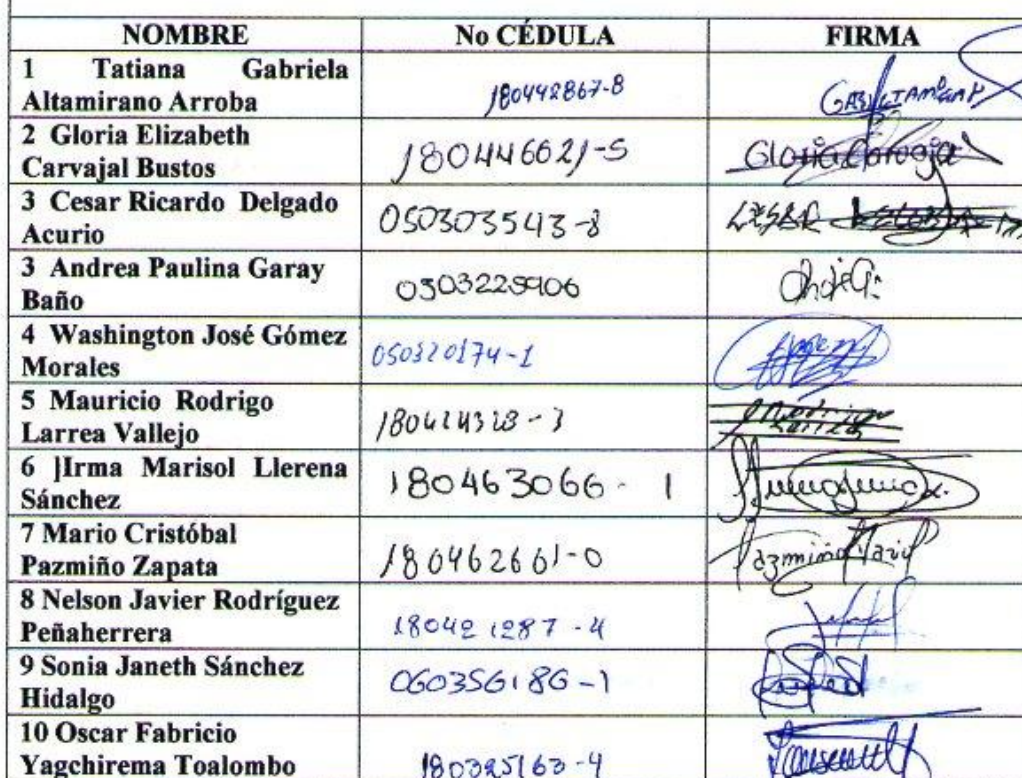 NOMBRE No CÉDULA FIRMA
1 Tatiana Gabriela
Altamirano Arroba 180442867-8
2 Gloria Elizabeth
Carvajal Bustos 180446621-5 Gloria Carvajal
3 Cesar Ricardo Delgado
Acurio 050303543-8
3 Andrea Paulina Garay
Baño 0503225906
4 Washington José Gómez
Morales 050320174-1
5 Mauricio Rodrigo
Larrea Vallejo 180424328-3
6 ]Irma Marisol Llerena
Sánchez 180463066-1
7 Mario Cristóbal
Pazmiño Zapata 180462661-0 Pazmiño Mario
8 Nelson Javier Rodríguez
Peñaherrera 180421287-4
9 Sonia Janeth Sánchez
Hidalgo 060356186-1
10 Oscar Fabricio
Yagchirema Toalombo 180325163-4